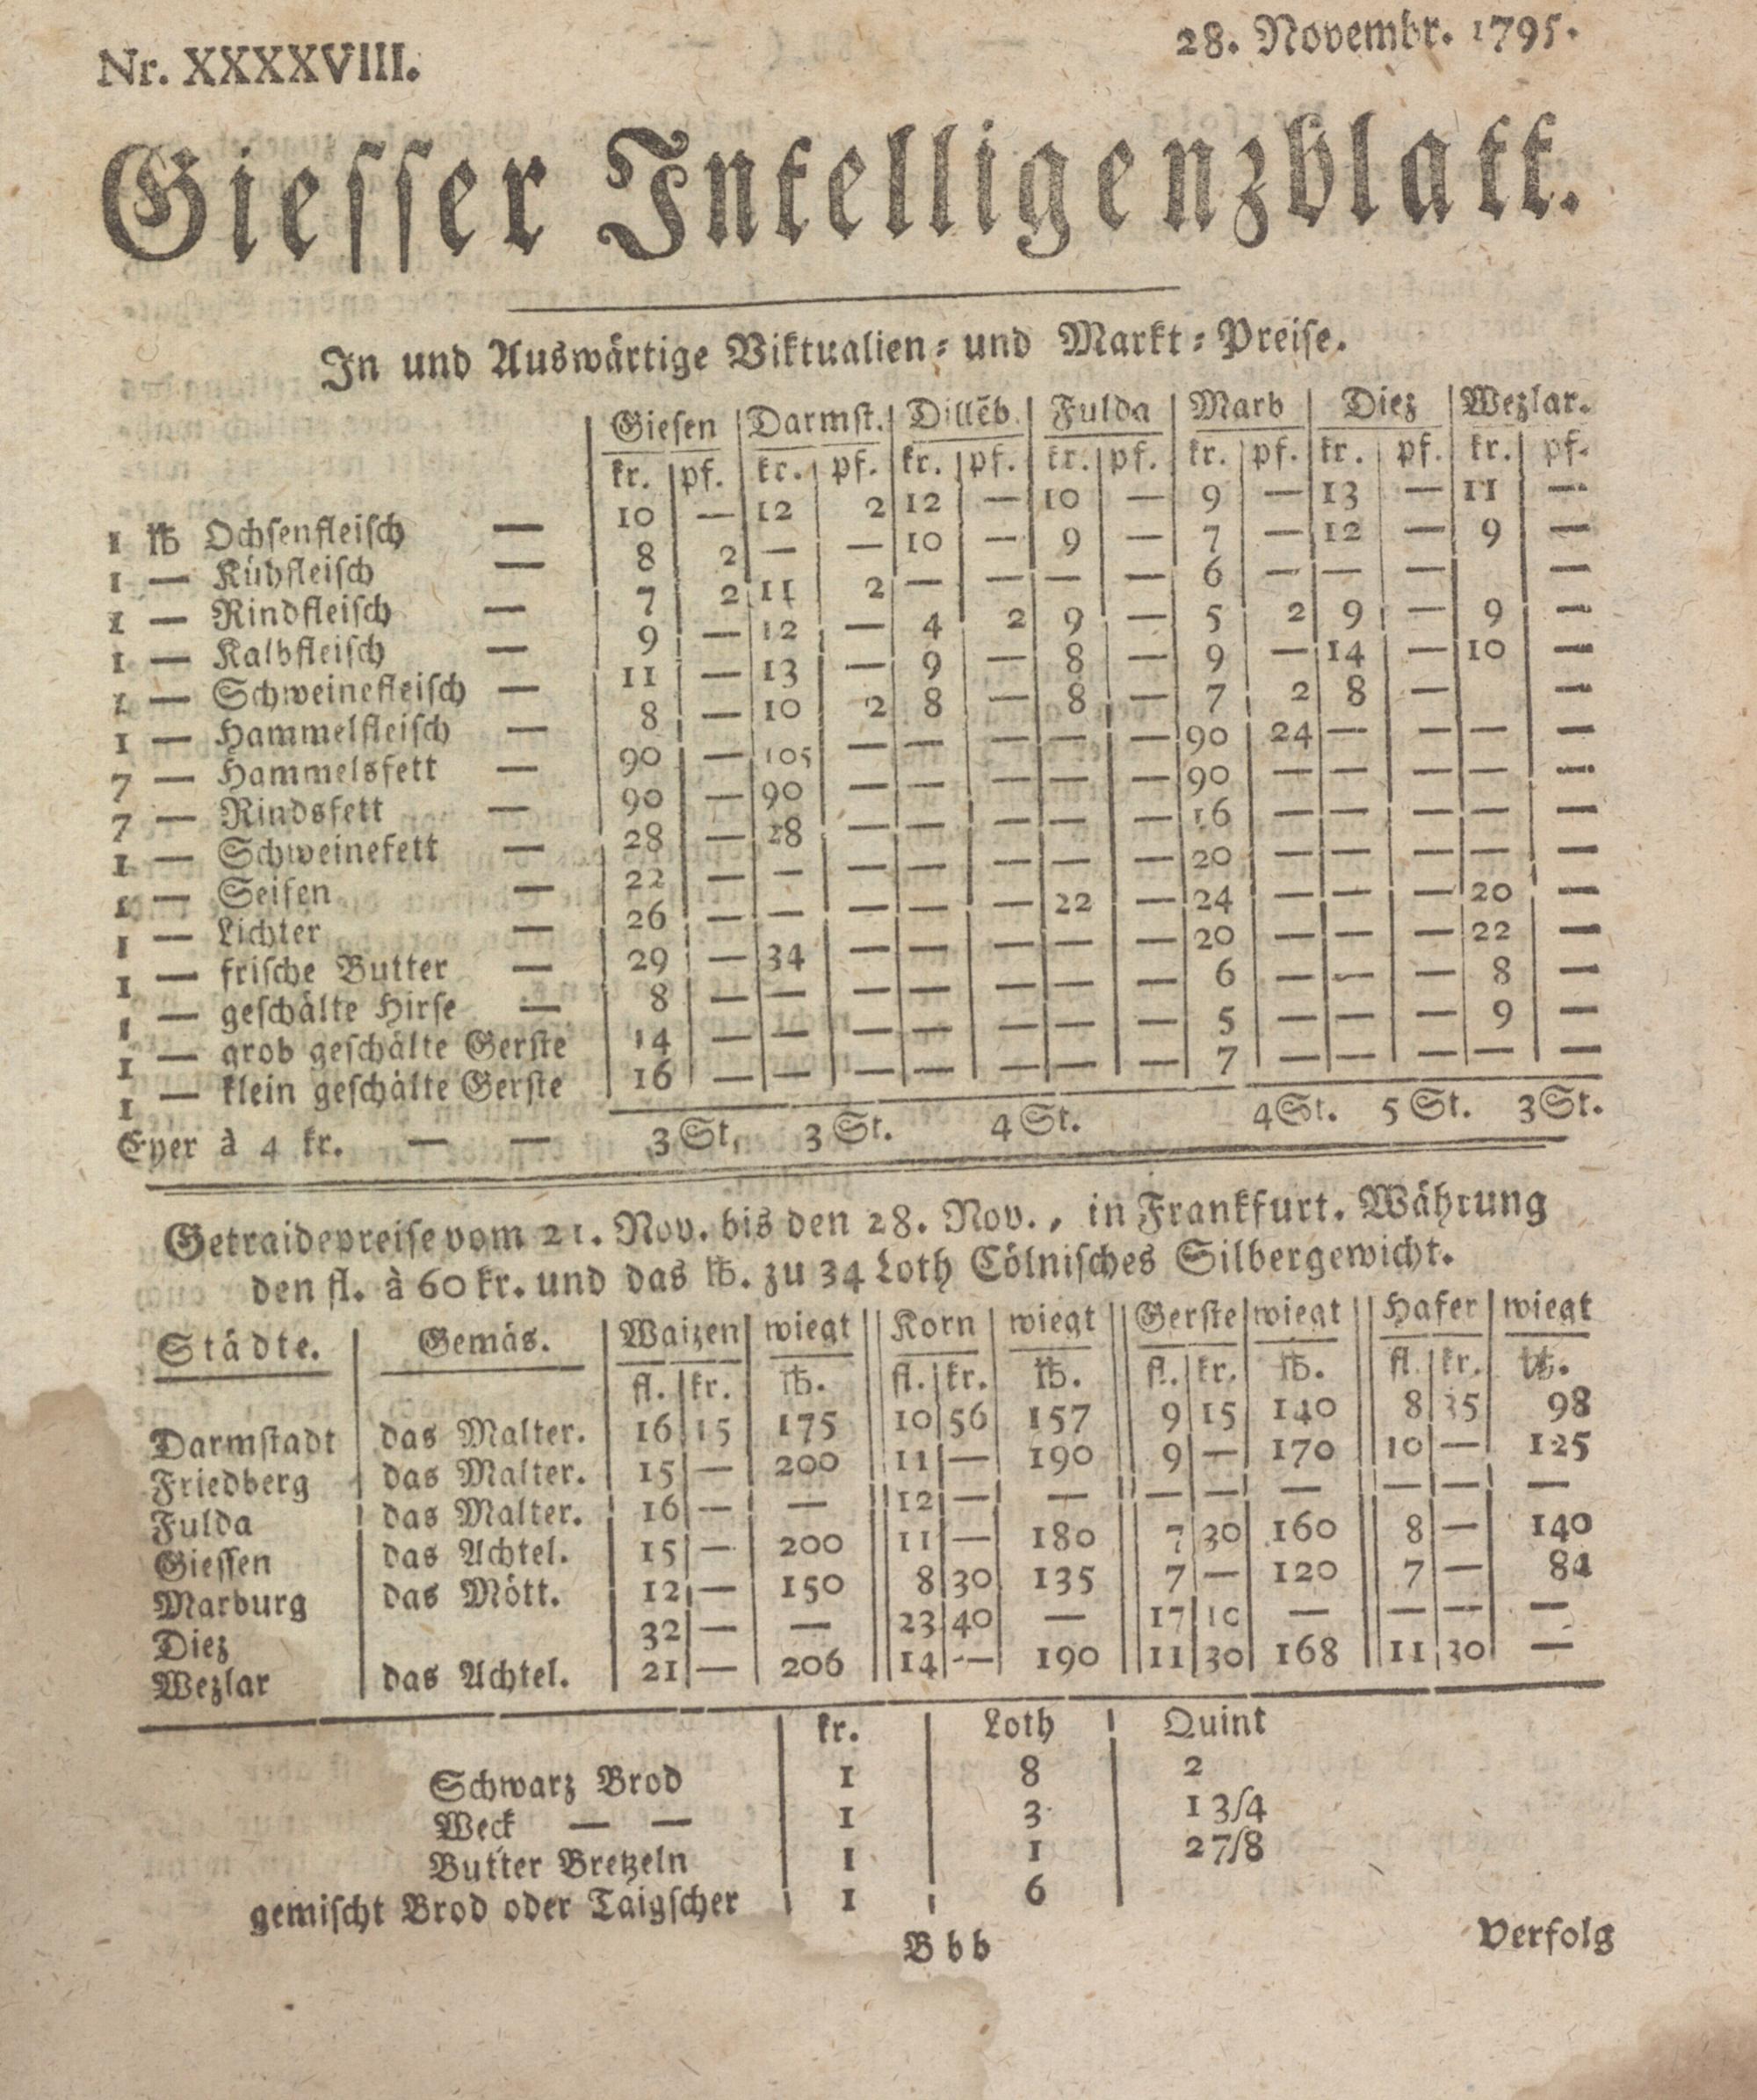 Nr. XXXXVIII. 28. Novembr. 1795.
Giesser Intelligenzblatt.
In und Auswärtige Viktualien- und Markt-Preise.
Giesen Darmst. Dillēb. Fulda Marb Diez Wezlar.
kr. pf. kr. pf. kr. pf. kr. pf. kr. pf. kr. pf. kr. pf.
1 ℔ Ochsenfleisch — 10 — 12 2 12 — 10 — 9 — 13 — 11 —
1 — Kühfleisch — 8 2 — — 10 — 9 — 7 — 12 — 9 —
1 — Rindfleisch — 7 2 11 2 — — — — 6 — — — —
1 — Kalbfleisch — 9 — 12 — 4 2 9 — 5 2 9 — 9 —
1 — Schweinefleisch — 11 — 13 — 9 — 8 — 9 — 14 — 10 —
1 — Hammelfleisch — 8 — 10 2 8 — 8 — 7 2 8 — —
7 — Hammelsfett — 90 — 105 — — — — — 90 24 — — — —
7 — Rindsfett — 90 — 90 — — — — — 90 — — — — —
1 — Schweinefett — 28 — 28 — — — — — 16 — — — — —
1 — Seifen — 22 — — — — — — — 20 — — — — —
1 — Lichter — 26 — — — — — 22 — 24 — — — 20 —
1 — frische Butter — 29 — 34 — — — — — 20 — — — 22 —
1 — geschälte Hirse — 8 — — — — — — — 6 — — — 8 —
1 — grob geschälte Gerste 14 — — — — — — — 5 — — — 9 —
1 — klein geschälte Gerste 16 — — — — — — — 7 — — — — —
Eyer à 4 kr. — — 3 St. 3 St. 4 St. 4 St. 5 St. 3 St.
Getraidepreise vom 21. Nov. bis den 28. Nov., in Frankfurt. Währung
den fl. à 60 kr. und das ℔. zu 34 Loth Cölnisches Silbergewicht.
Städte. Gemäs. Waizen wiegt Korn wiegt Gerste wiegt Hafer wiegt
fl. kr. ℔. fl. kr. ℔. fl. kr. ℔. fl. kr. ℔.
Darmstadt das Malter. 16 15 175 10 56 157 9 15 140 8 35 98
Friedberg das Malter. 15 — 200 11 — 190 9 — 170 10 — 125
Fulda das Malter. 16 — — 12 — — — — — — — —
Giessen das Achtel. 15 — 200 11 — 180 7 30 160 8 — 140
Marburg das Mött. 12 — 150 8 30 135 7 — 120 7 — 84
Diez 32 — — 23 40 — 17 10 — — — —
Wezlar das Achtel. 21 — 206 14 — 190 11 30 168 11 30 —
kr. Loth Quint
Schwarz Brod 1 8 2
Weck — — 1 3 1 3/4
Butter Bretzeln 1 1 2 7/8
gemischt Brod oder Taigscher 1 6
B b b Verfolg